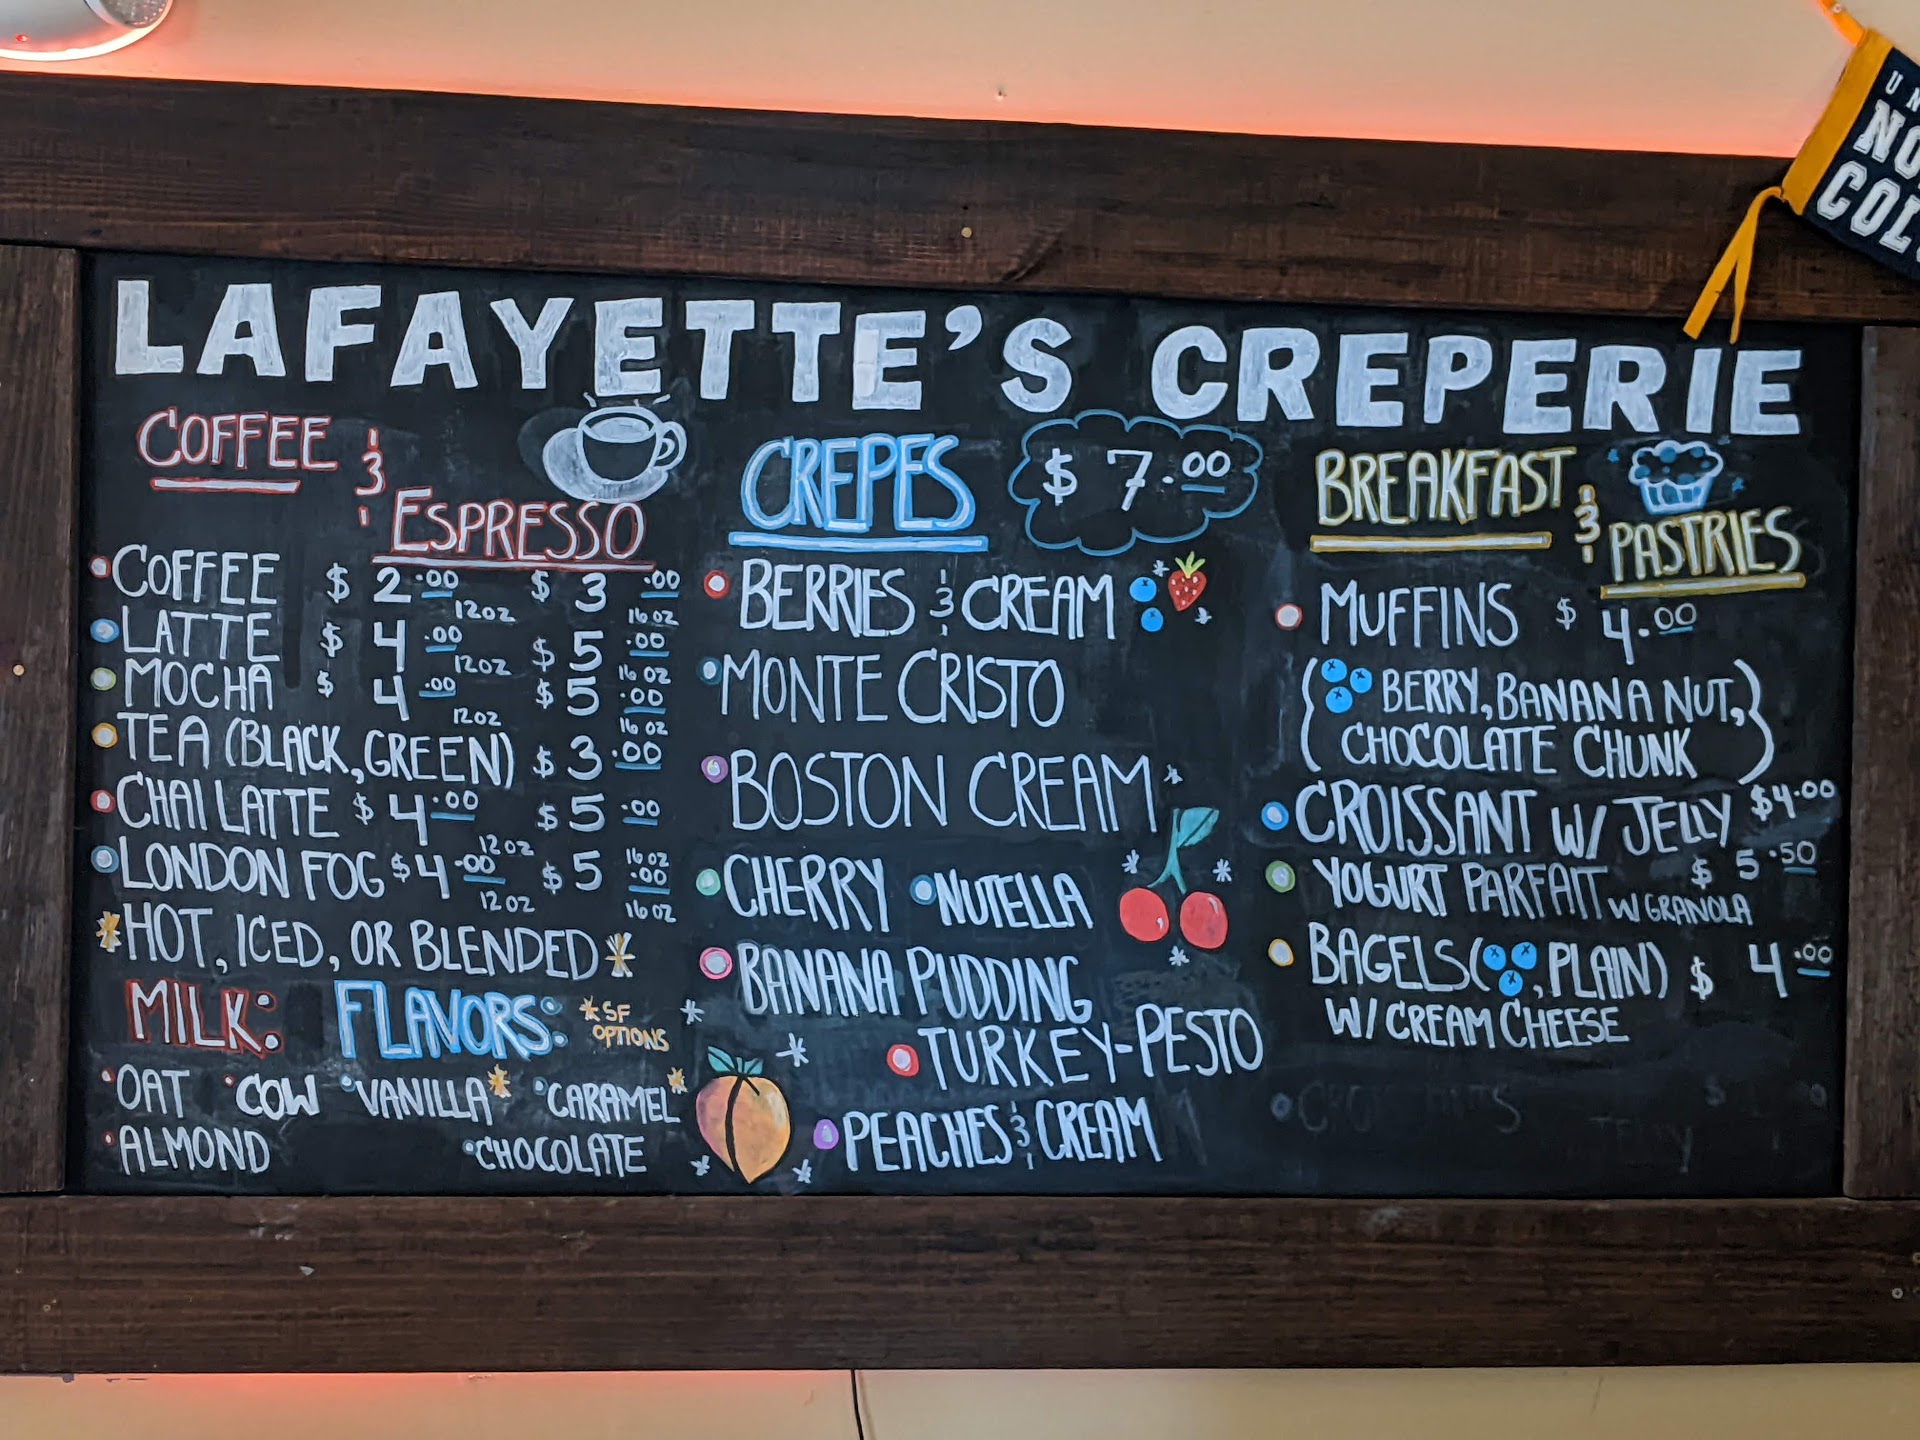 LAFAYETTE'S CREPERIE
COFFEE &
ESPRESSO
COFFEE $2.00 12oz $3.00 16oz
LATTE $4.00 12oz $5.00 16oz
MOCHA $4.00 12oz $5.00 16oz
TEA (BLACK, GREEN) $3.00
CHAI LATTE $4.00 12oz $5.00 16oz
LONDON FOG $4.00 12oz $5.00 16oz
*HOT, ICED, OR BLENDED*
MILK:
OAT COW
ALMOND
FLAVORS: *SF OPTIONS
VANILLA* CARAMEL*
CHOCOLATE
CREPES $7.00
BERRIES & CREAM
MONTE CRISTO
BOSTON CREAM
CHERRY NUTELLA
BANANA PUDDING
TURKEY-PESTO
PEACHES & CREAM
BREAKFAST &
PASTRIES
MUFFINS $4.00
(BERRY, BANANA NUT,
CHOCOLATE CHUNK)
CROISSANT W/ JELLY $4.00
YOGURT PARFAIT W GRANOLA $5.50
BAGELS ( , PLAIN) $4.00
W/ CREAM CHEESE